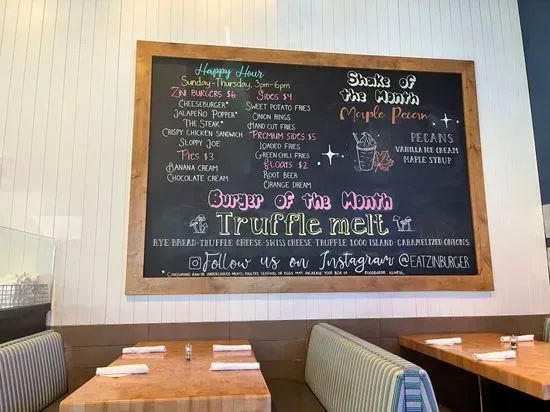 Happy Hour
Sunday-Thursday, 3pm-6pm
Zini Burgers $6
Cheeseburger*
Jalapeño Popper*
The Steak*
Crispy Chicken Sandwich
Sloppy Joe
Pies $3
Banana Cream
Chocolate Cream
Sides $4
Sweet Potato Fries
Onion Rings
Hand Cut Fries
Premium Sides $5
Loaded Fries
Green Chili Fries
Floats $2
Root Beer
Orange Dream
Shake of
the Month
Maple Pecan
Pecans
Vanilla Ice Cream
Maple Syrup
Burger of the Month
Truffle melt
Rye Bread-Truffle Cheese-Swiss Cheese-Truffle 1000 Island-Caramelized Onions
Follow us on Instagram @eatzinburger
*Consuming raw or undercooked meats, poultry, seafood, or eggs may increase your risk of foodborne illness.